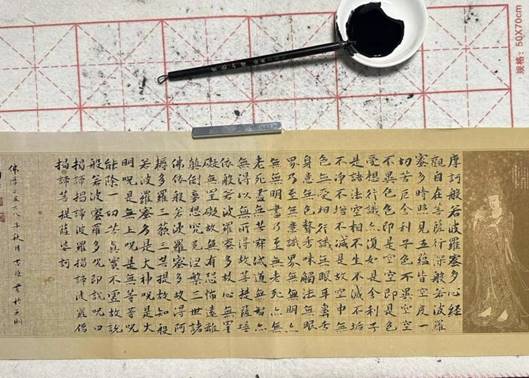 規格：50X70cm
摩訶般若波羅蜜多心經
觀自在菩薩行深般若波羅
蜜多時照見五蘊皆空度一
切苦厄舍利子色不異空空
不異色色即是空空即是色
受想行識亦復如是舍利子
是諸法空相不生不滅不垢
不淨不增不減是故空中無
色無受想行識無眼耳鼻舌
身意無色聲香味觸法無眼
界乃至無意識界無無明亦
無無明盡乃至無老死亦無
老死盡無苦集滅道無智亦
無得以無所得故菩提薩埵
依般若波羅蜜多故心無罣
礙無罣礙故無有恐怖遠離
顛倒夢想究竟涅槃三世諸
佛依般若波羅蜜多故得阿
耨多羅三藐三菩提故知般
若波羅蜜多是大神呪是大
明呪是無上呪是無等等呪
能除一切苦真實不虛故說
般若波羅蜜多呪即說呪曰
揭諦揭諦波羅揭諦波羅僧
揭諦菩提薩婆訶